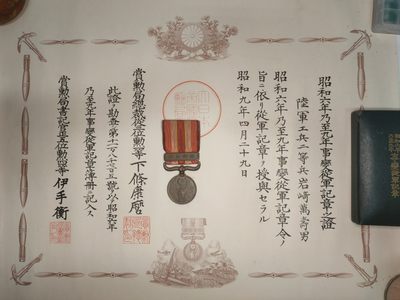 昭和六年乃至九年事變從軍記章ノ證
陸軍工兵二等兵岩崎萬壽男
昭和六年乃至九年事變從軍記章令ノ
旨ニ依リ從軍記章ヲ授與セラル
昭和九年四月二十九日
賞勲局總裁從三位勲二等下條康麿
此證ヲ勘査シ第十一万八千百三十五號ヲ以テ昭和六年
乃至九年事變從軍記章簿册ニ記入ス
賞勲局書記官正五位勲四等伊手衡